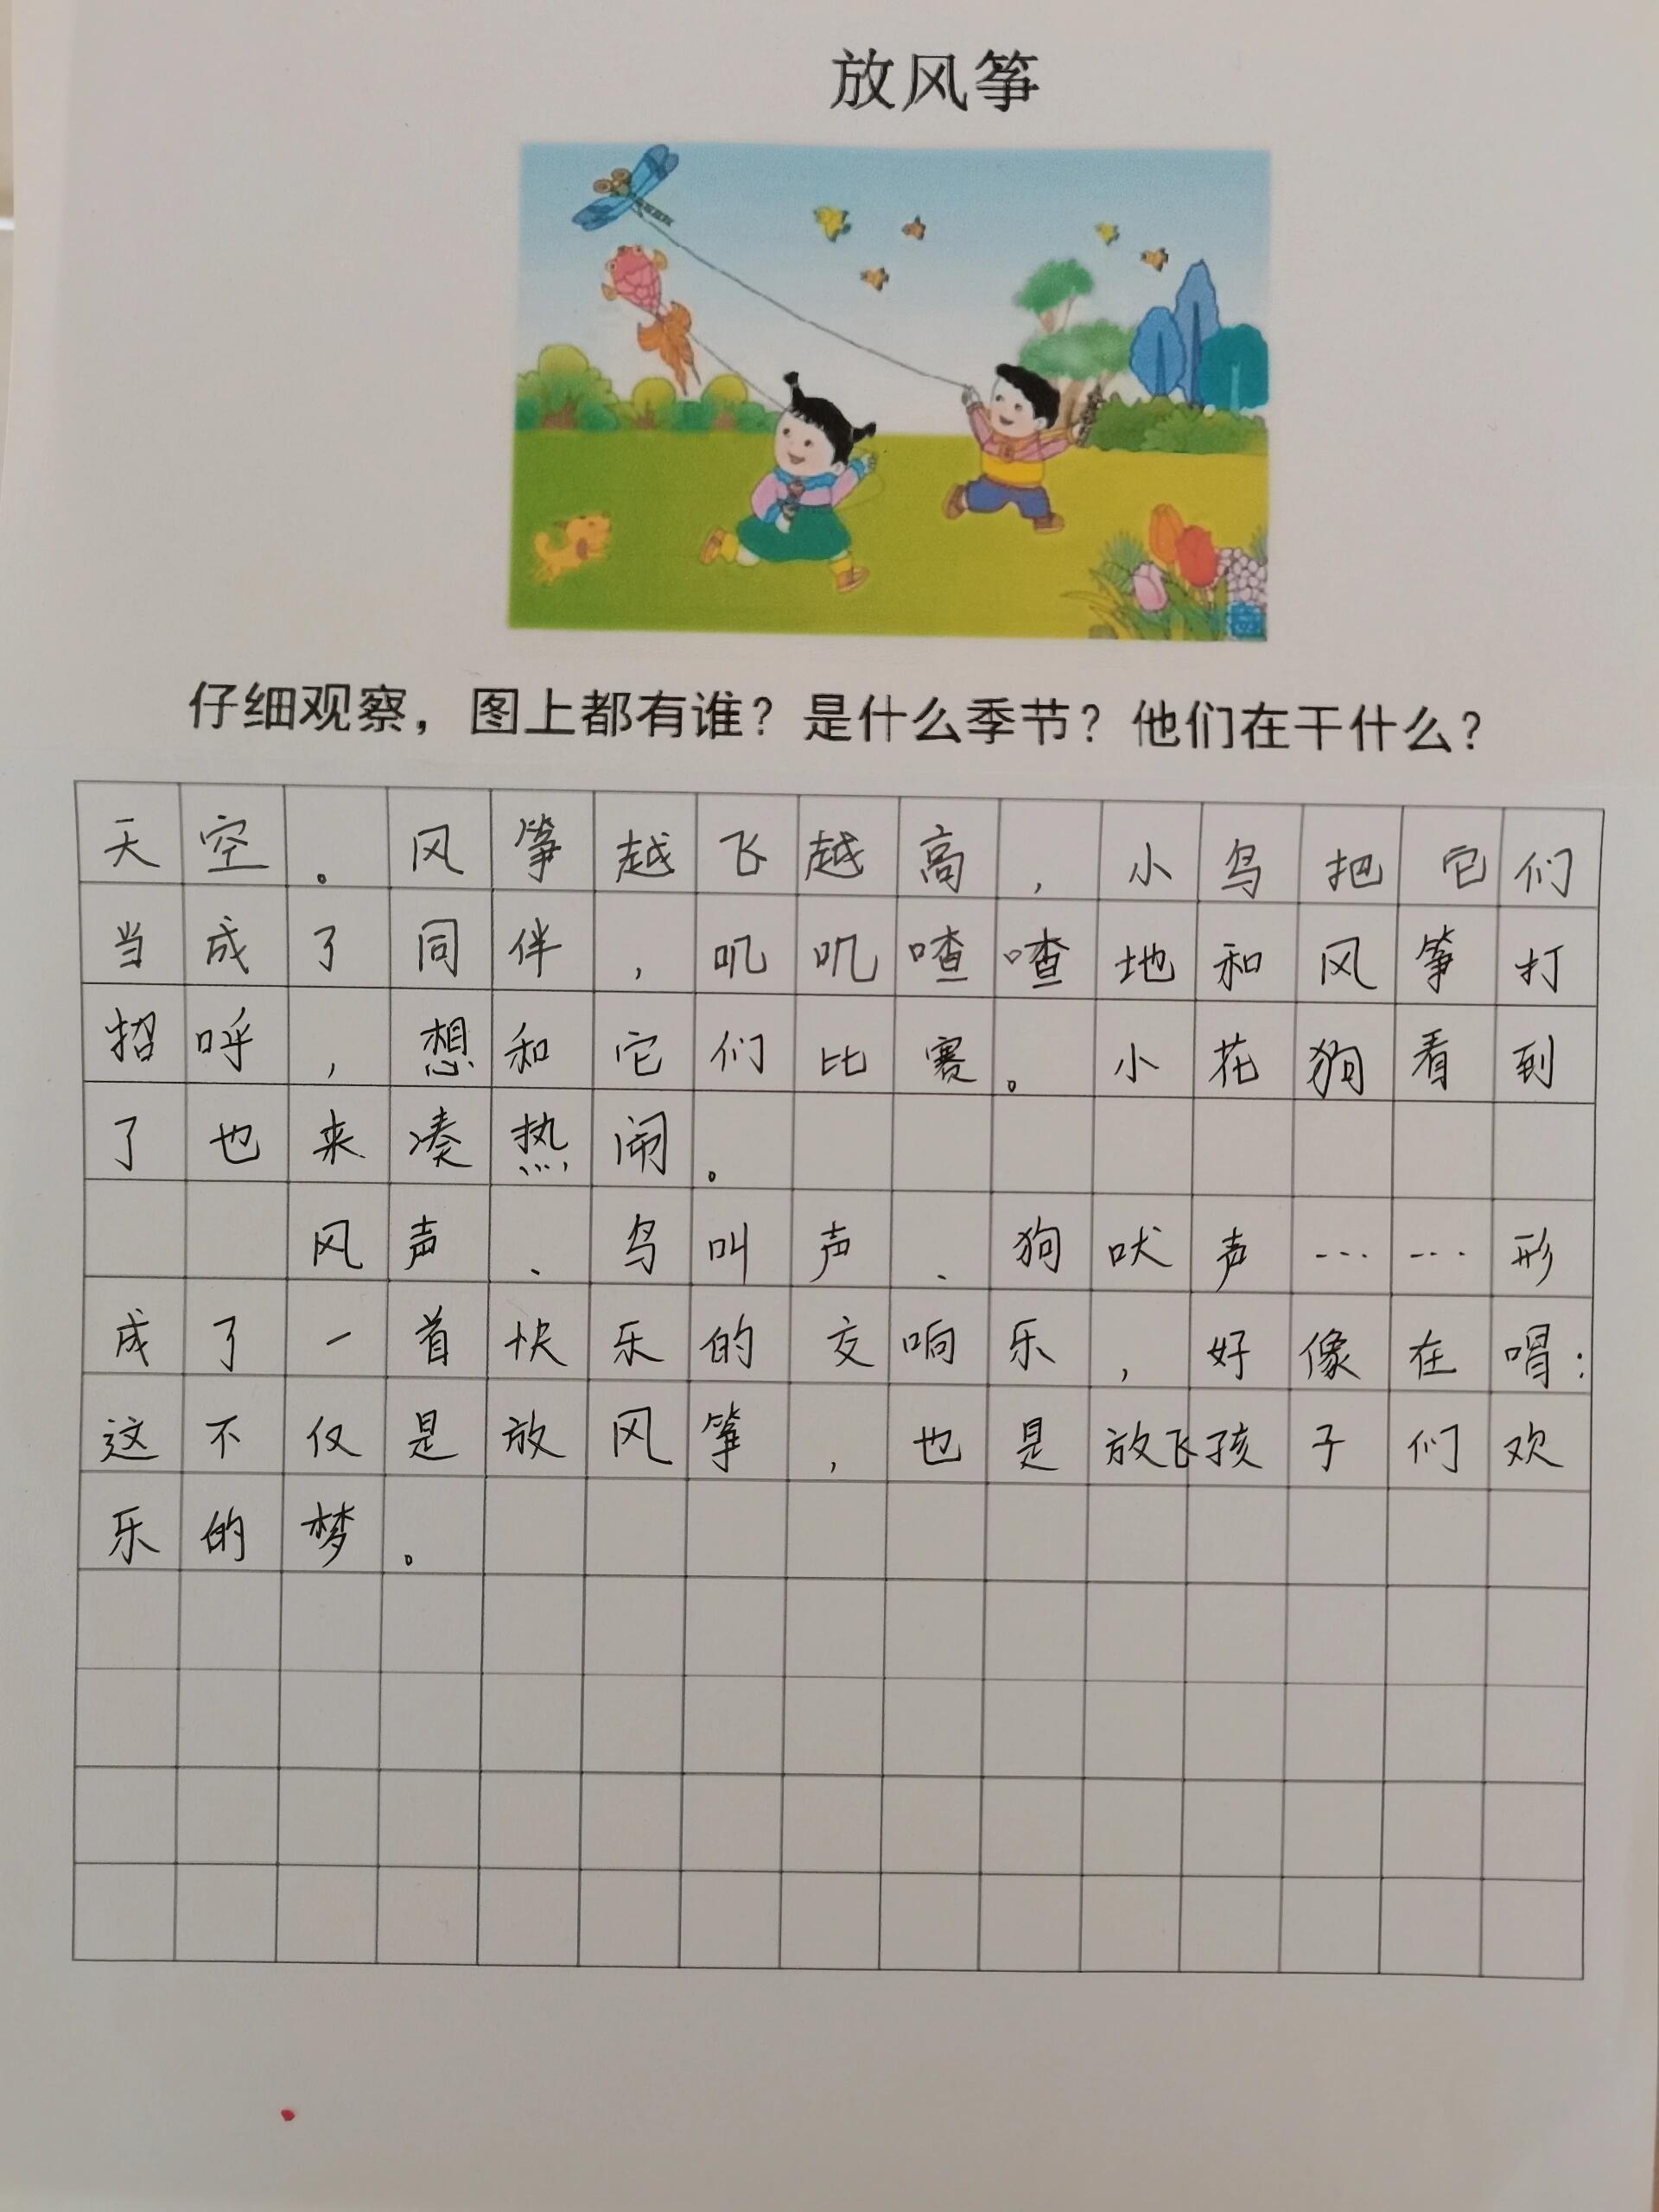 放风筝
仔细观察，图上都有谁？是什么季节？他们在干什么？
天空。风筝越飞越高，小鸟把它们
当成了同伴，叽叽喳喳地和风筝打
招呼，想和它们比赛。小花狗看到
了也来凑热闹。
风声、鸟叫声、狗吠声……形
成了一首快乐的交响乐，好像在唱：
这不仅是放风筝，也是放飞孩子们欢
乐的梦。